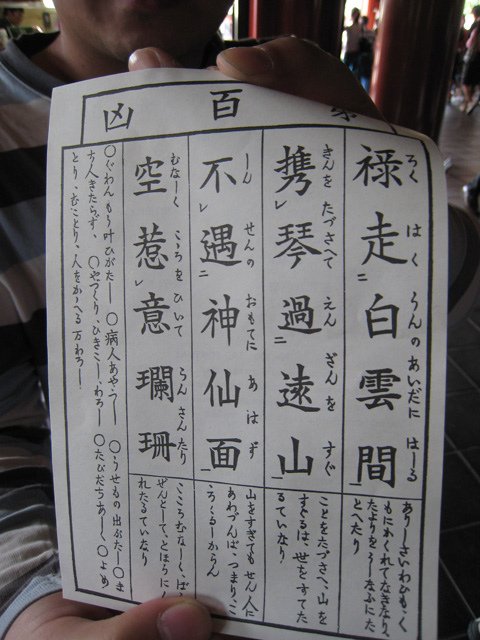 百 凶
ろく はく うんのあいだに はしる
禄走二白雲間一
ありしさいわひも、く
もにかくれてなきなり、
たよりをうしなふにた
とへたり
きんを たづさへて えん ざんを すぐ
携レ琴過二遠山一
ことをたづさへ、山を
すぐるは、せをすてた
るていなり
しん せんの おもてに あはず
不レ遇二神仙面一
山をすぎてもせん人に
あわづんば、つまり、こ
ころくるしからん
むなしく こころをひいて らんさんたり
空惹レ意瓓珊
こころむなしく、ぼう
ぜんとして、とほうにく
れたるていなり
○ぐわんもう叶ひがたし ○病人あやうし ○うせもの出ぶたし ○ま
ち人きたらず、 ○やづくり、ひきこし、わろし ○たびだちあしく○よめ
とり、むことり、人をかゝへる万わろし